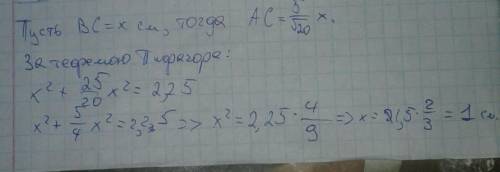 Пусть BC = x см, тогда AC = 5/√20 x.
За теоремою Пифагора:
x² + 25/20 x² = 2,25
x² + 5/4 x² = 2,25 => x² = 2,25 · 4/9 => x = 1,5 · 2/3 = 1 см.